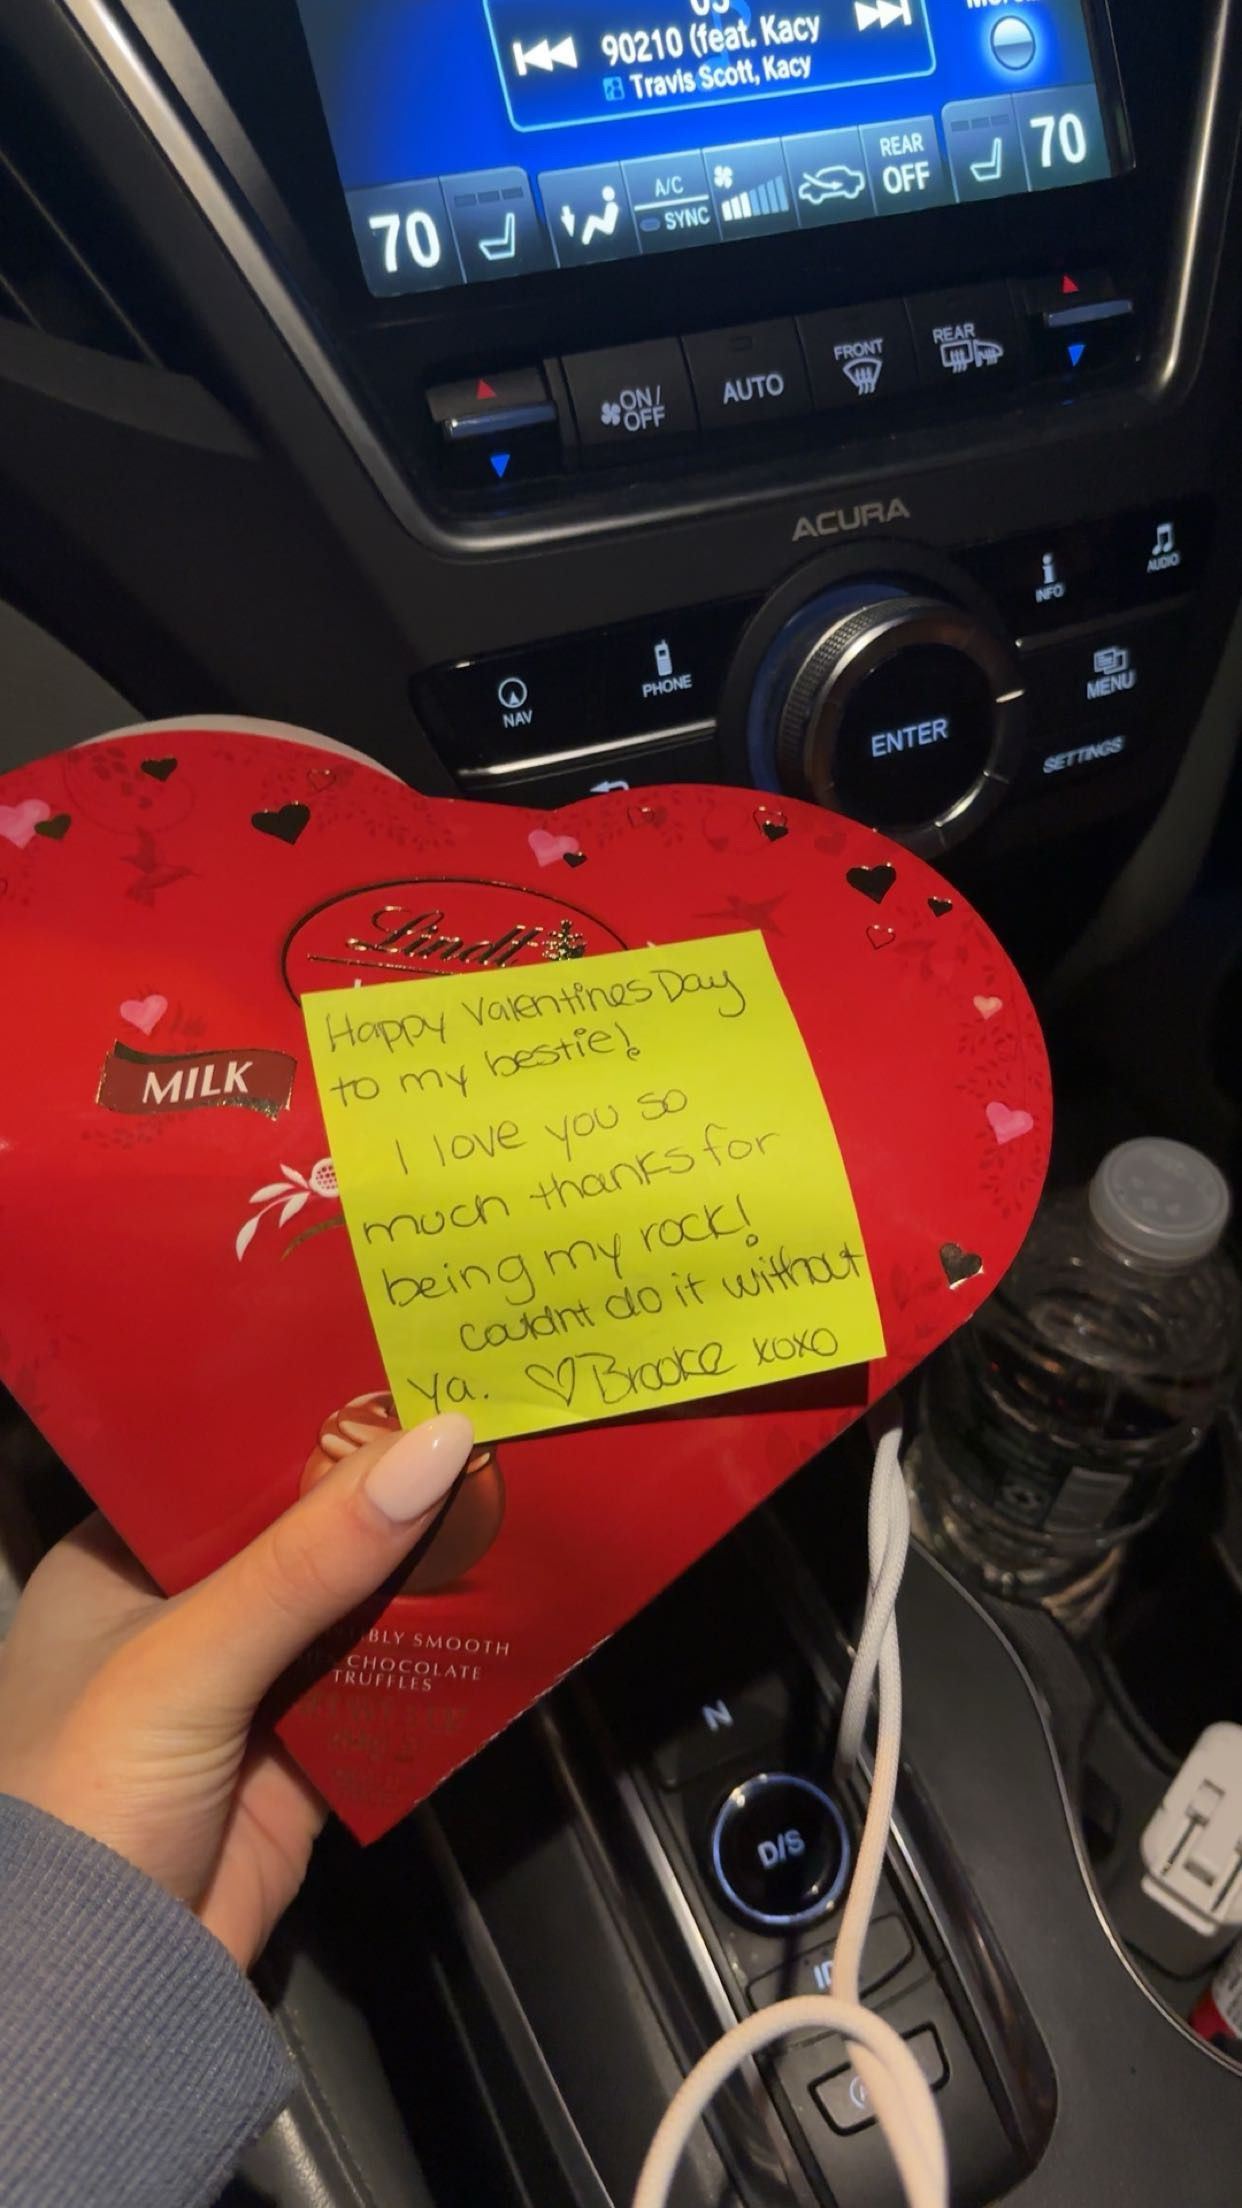 90210 (feat. Kacy
Travis Scott, Kacy
70
A/C
SYNC
REAR
OFF
70
ON/
OFF
AUTO
FRONT
REAR
ACURA
INFO
AUDIO
NAV
PHONE
ENTER
MENU
SETTINGS
Lindt
MILK
Happy Valentines Day
to my bestie!
I love you so
much thanks for
being my rock!
couldnt do it without
ya. ♡ Brooke xoxo
BLY SMOOTH
CHOCOLATE
TRUFFLES
N
D/S